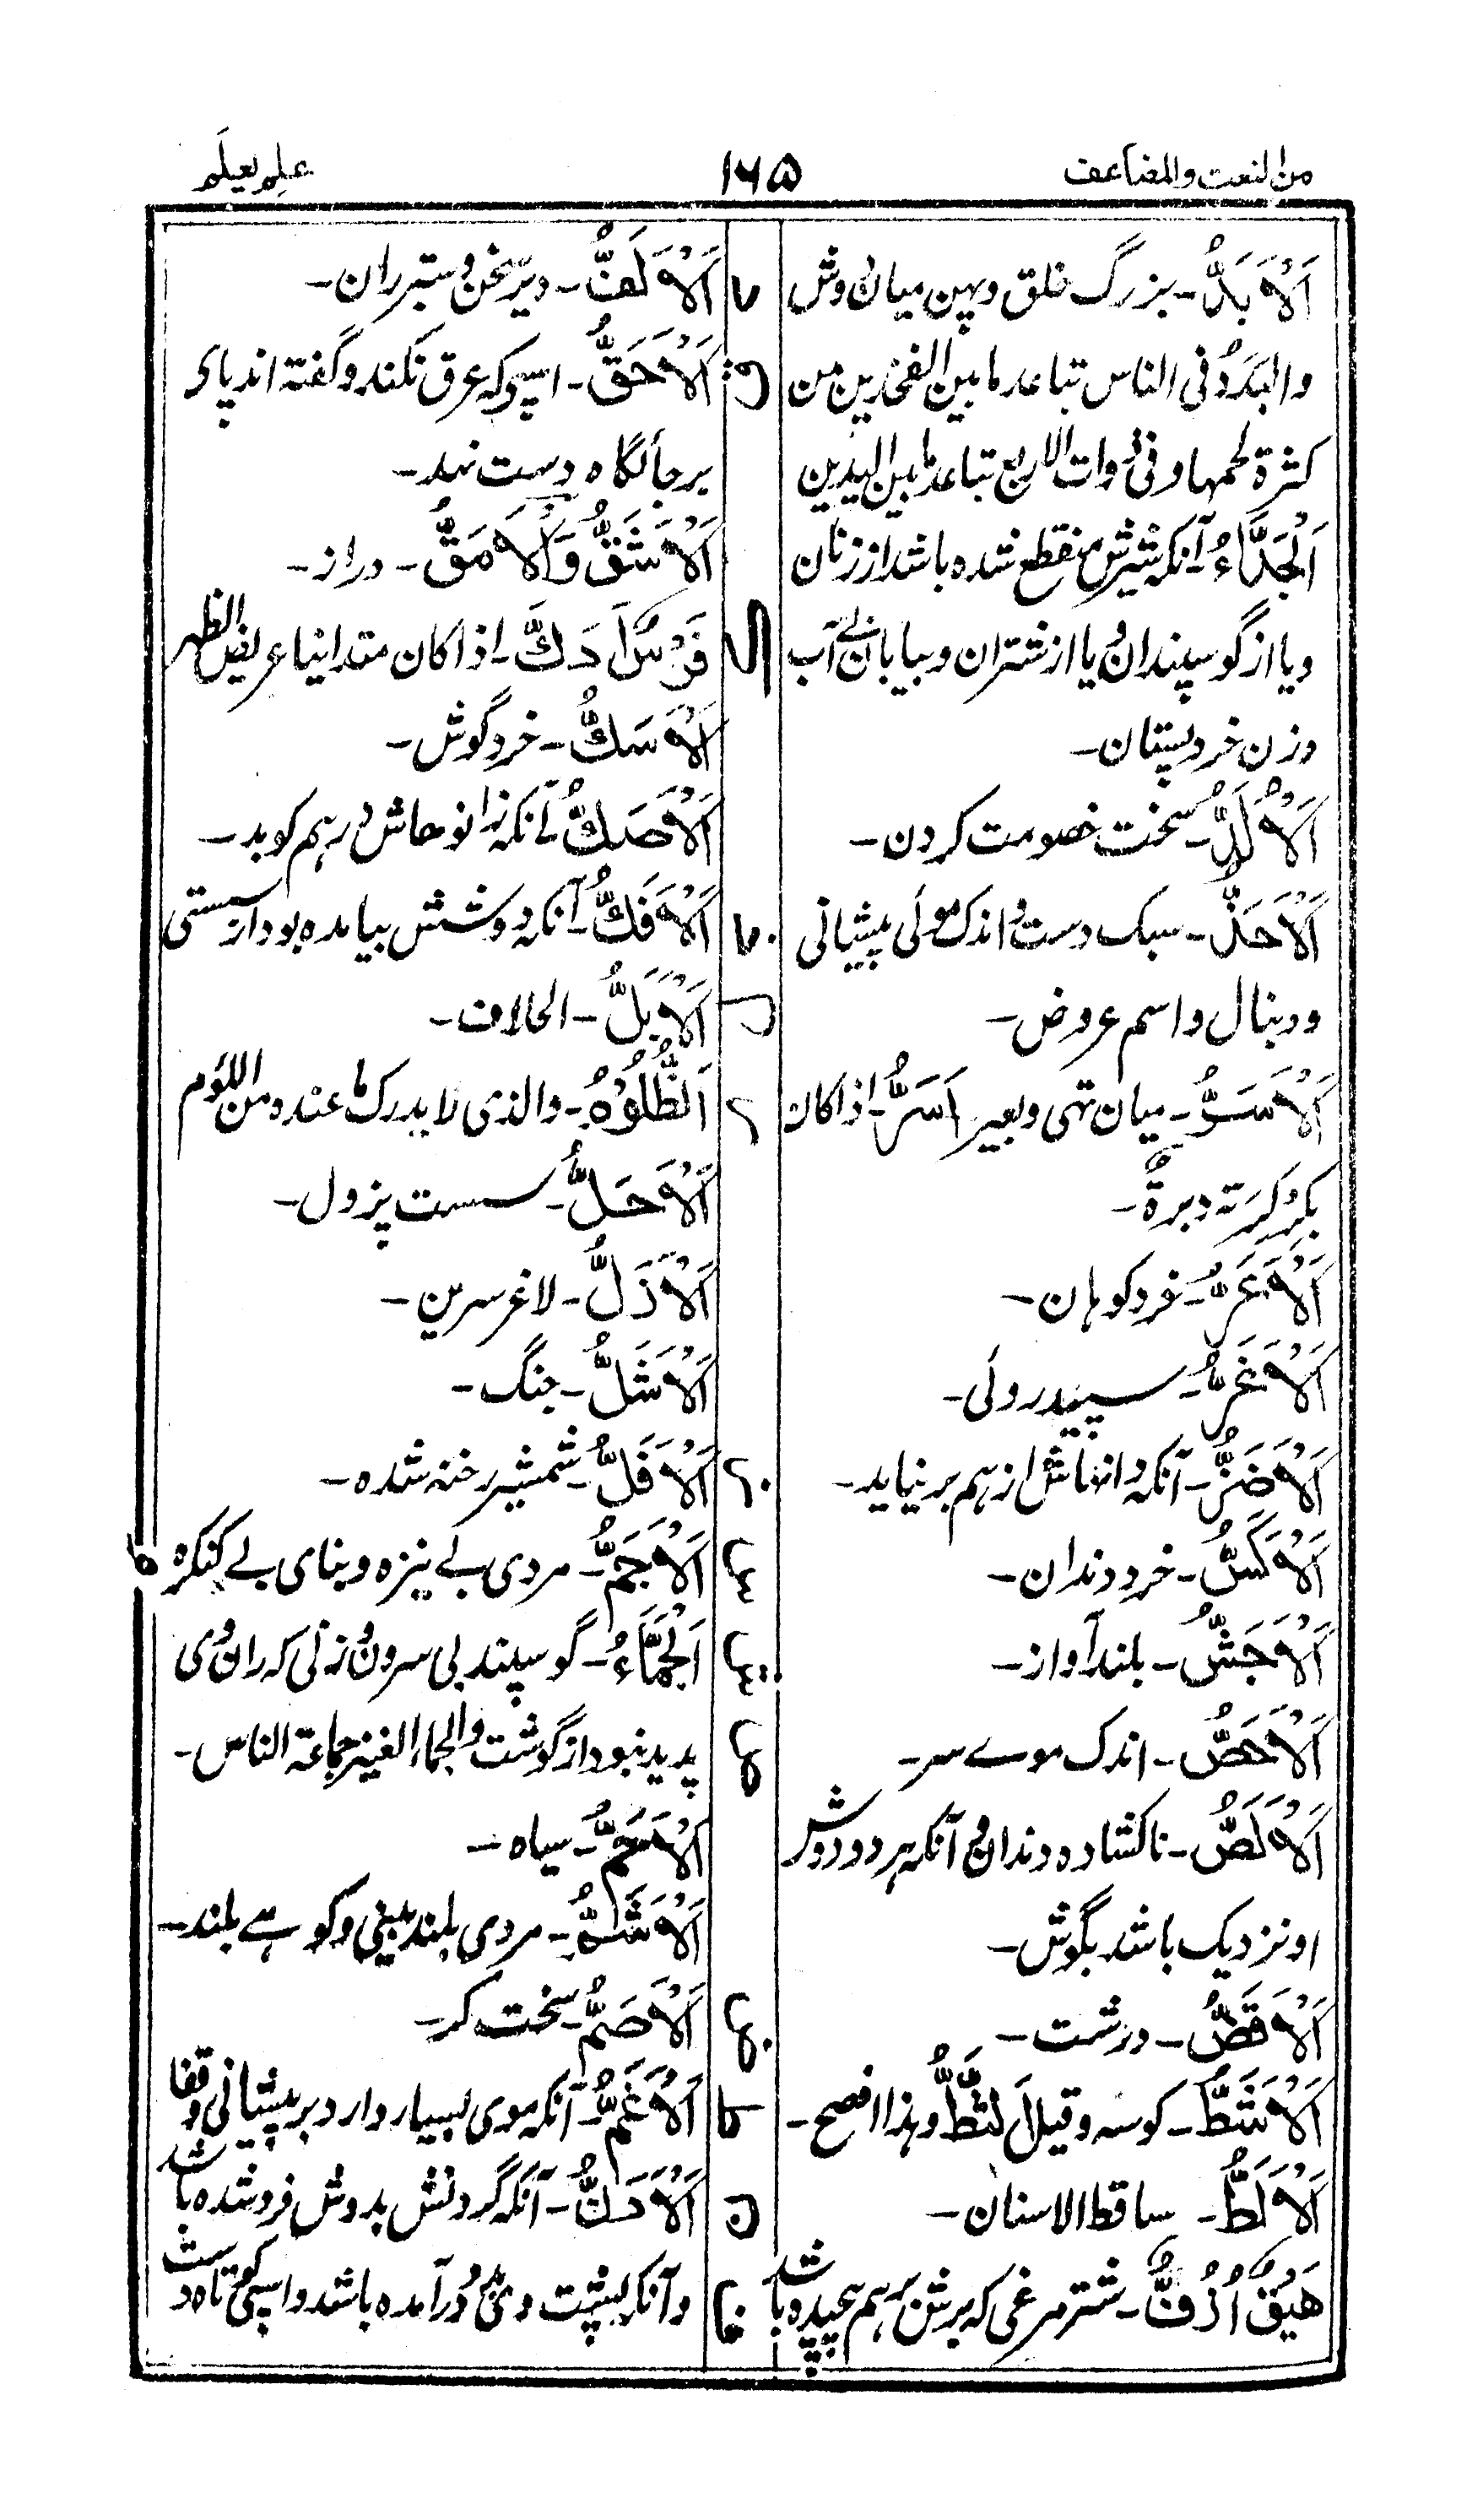 من النعت والمضاعف
۱۶۵
علم یعلم
اَلْاَبَدُّ ۔ بزرگ خلق وپهن میان دوش
والبَدَدُ فی الناس تباعد ما بین الفخذین من
کثرة لحمها وفی ذوات الاربع تباعد ما بین الیدین
اَلْجَدَّاءُ ۔ آنکه شیرش منقطع شده باشد از زنان
ویا از گوسپندان ویا از شتران وبیابان بی آب
وزن خرد پستان ۔
اَلْاَلَدُّ ۔ سخت خصومت کردن ۔
اَلْاَحَذُّ ۔ سبک دست واندک موئی پیشانی
ودنبال واسم عروض ۔
اَلْاَسَرُّ ۔ میان تهی وبعیر اَسَرُّ ۔ اذا کان
بکرکرته دبرةٌ ۔
اَلْاَعَرُّ ۔ خرد کوهان ۔
اَلْاَغَرُّ ۔ سپید روئی ۔
اَلْاَضَزُّ ۔ آنکه دندانهاش از هم برنیاید ۔
اَلْاَکَسُّ ۔ خرد دندان ۔
اَلْاَجَشُّ ۔ بلند آواز ۔
اَلْاَحَصُّ ۔ اندک موے سر ۔
اَلْاَلَصُّ ۔ ناکشاده دندان وآنکه هر دو دوش
او نزدیک باشد بگوش ۔
اَلْاَقَضُّ ۔ درشت ۔
اَلْاَثَطُّ ۔ کوسه وقیل اَلثَّطُّ وهذا افصح ۔
اَلْاَلَطُّ ۔ ساقط الاسنان ۔
هَیْقٌ اَزَفُّ ۔ شتر مرغی که پرش برهم پیچیده باشد
اَلْاَلَفُّ ۔ دیر سخن وستبر ران ۔
اَلْاَحَقُّ ۔ اسپی که عرق نکند وگفته اند پای
برجایگاه دست نهد ۔
اَلْاَشَقُّ وَالْاَمَقُّ ۔ دراز ۔
فَرَسٌ اَدَكُّ ۔ اذا کان متدانیا عریض الظهر
اَلْاَسَكُّ ۔ خرد گوش ۔
اَلْاَصَكُّ ۔ آنکه زانوهاش درهم کوبد ۔
اَلْاَفَكُّ ۔ آنکه دوشش بیامده بود از سستی
اَلْاَبَلُّ ۔ الحلاف ۔
اَلظُّلُوْمُ ۔ والذی لا یدرک ما عنده من اللؤم
اَلْاَحَلُّ ۔ سست پزول ۔
اَلْاَزَلُّ ۔ لاغر سرین ۔
اَلْاَشَلُّ ۔ چنگ ۔
اَلْاَفَلُّ ۔ شمشیر رخنه شده ۔
اَلْاَجَمُّ ۔ مردی بے نیزه وبنای بے کنگره
اَلْجَمَّاءُ ۔ گوسپند بی سرون وزنی که ران وی
پدید نبود از گوشت والجماء الغفیر جماعة الناس ۔
اَلْاَسَحَمُّ ۔ سیاه ۔
اَلْاَشَمُّ ۔ مردی بلند بینی وکوهے بلند ۔
اَلْاَصَمُّ ۔ سخت کر ۔
اَلْاَغَمُّ ۔ آنکه موی بسیار دارد بر پیشانی وقفا
اَلْاَدَنُّ ۔ آنکه گردنش بدوش فروشده باشد
وآنکه پشت وی درآمده باشد واسپی کوتاه دست